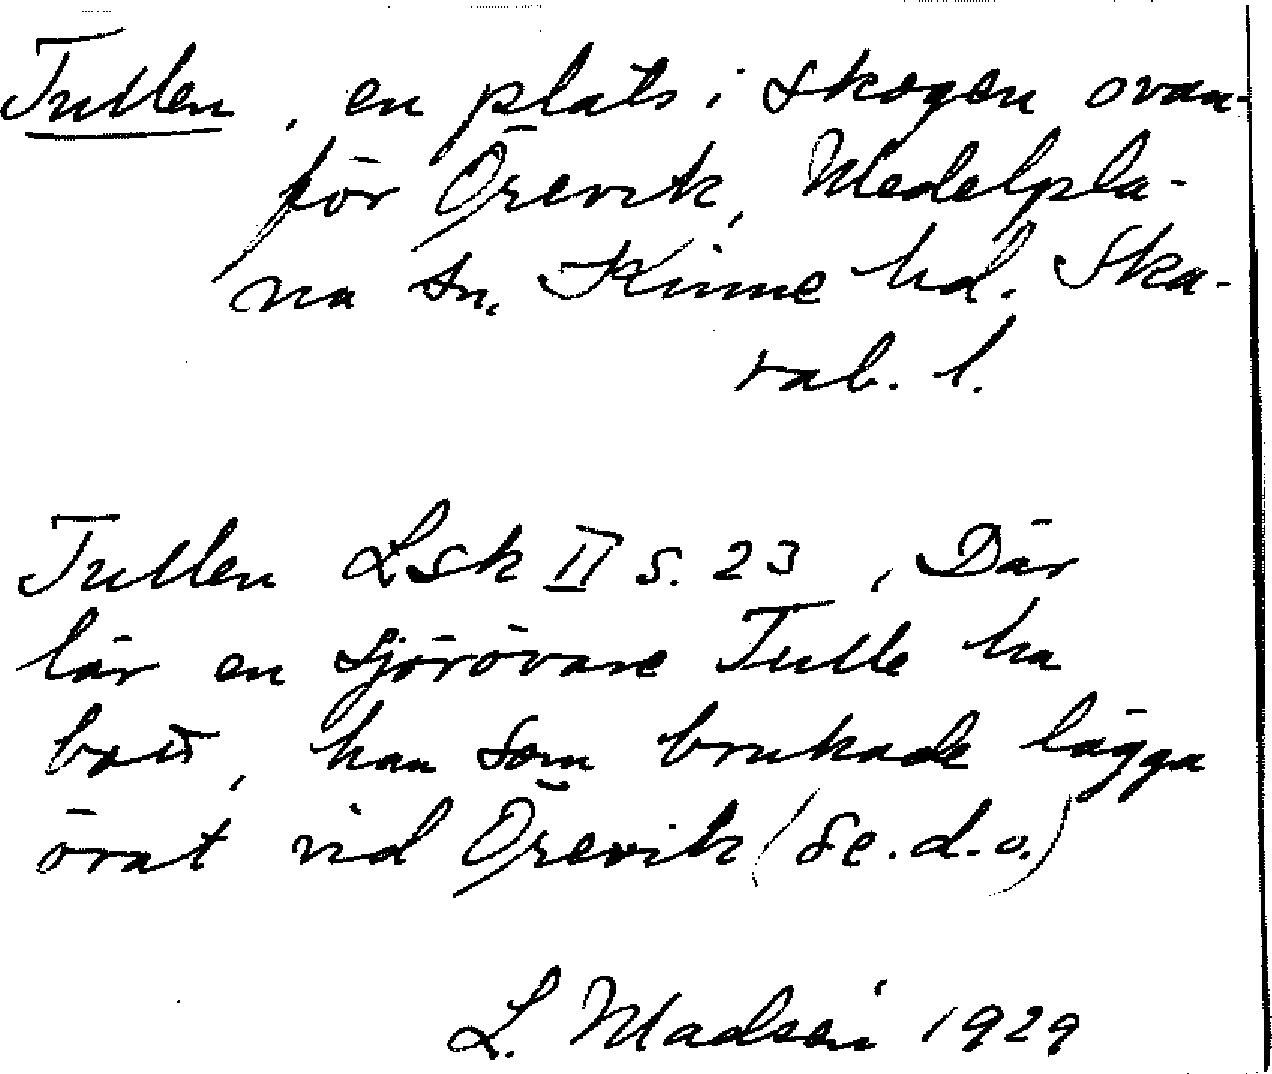 Tullen, en plats i skogen ovan-
för Örevik, Medelpla-
na sn. Kinne hd. Ska-
rab. l.
Tullen Lsk II s. 23, Där
lär en sjörövare Tulle ha
bott, han som brukade lägga
örat vid Örevik (se.d.o.)
L. Madsén 1929